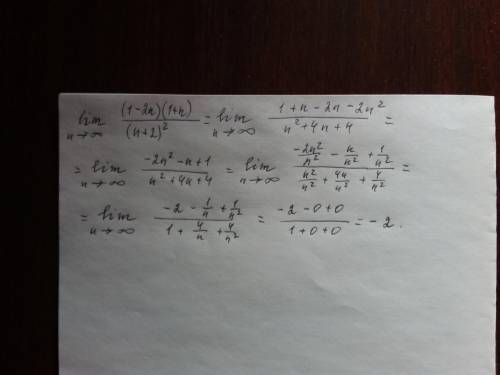 lim n→∞ (1-2n)(1+n)/(n+2)² = lim n→∞ (1+n-2n-2n²)/(n²+4n+4) =
= lim n→∞ (-2n²-n+1)/(n²+4n+4) = lim n→∞ (-2n²/n² - n/n² + 1/n²)/(n²/n² + 4n/n² + 4/n²) =
= lim n→∞ (-2 - 1/n + 1/n²)/(1 + 4/n + 4/n²) = (-2-0+0)/(1+0+0) = -2.